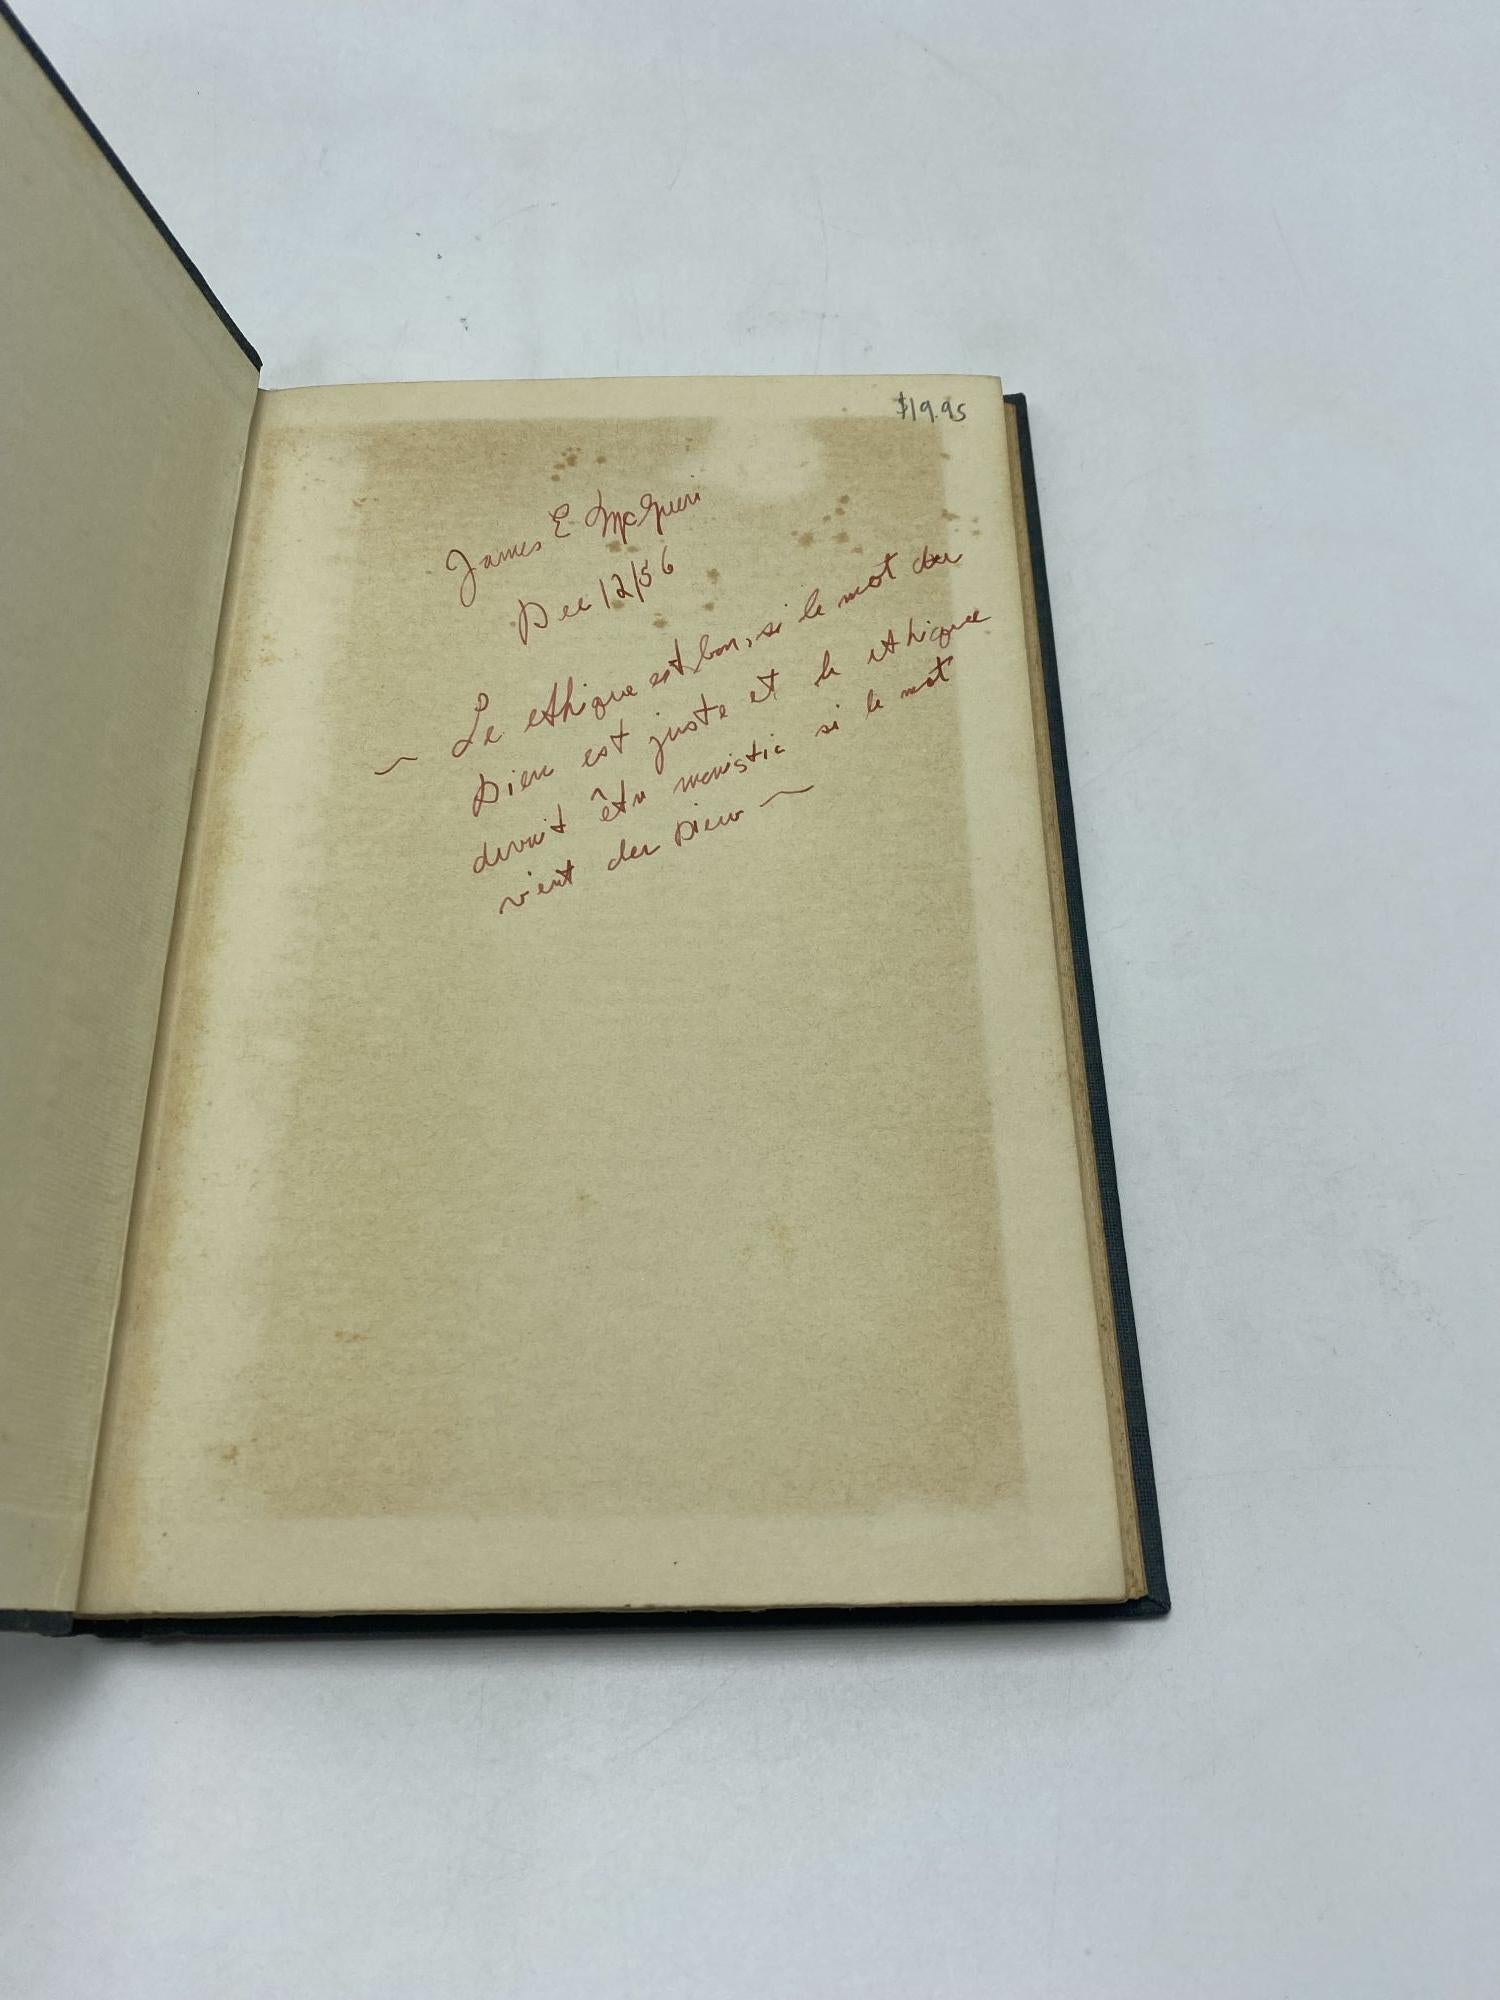 $19.95
James E McGuire
Dec 12/56
~ Le ethique est bon, si le mot der
Dieu est juste et le ethique
devait être monistic si le mot
vient der Dieu ~